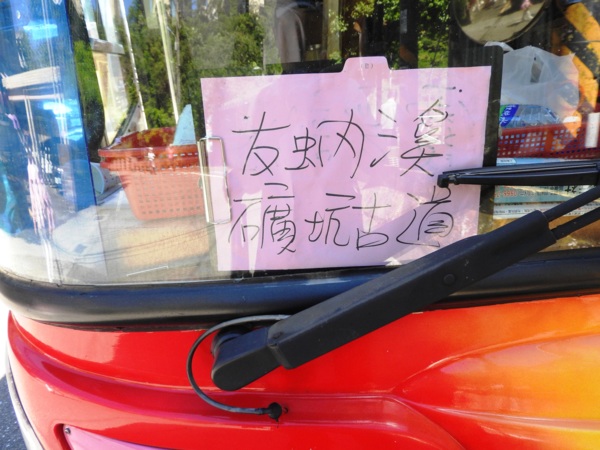 友蚋溪
礦坑古道